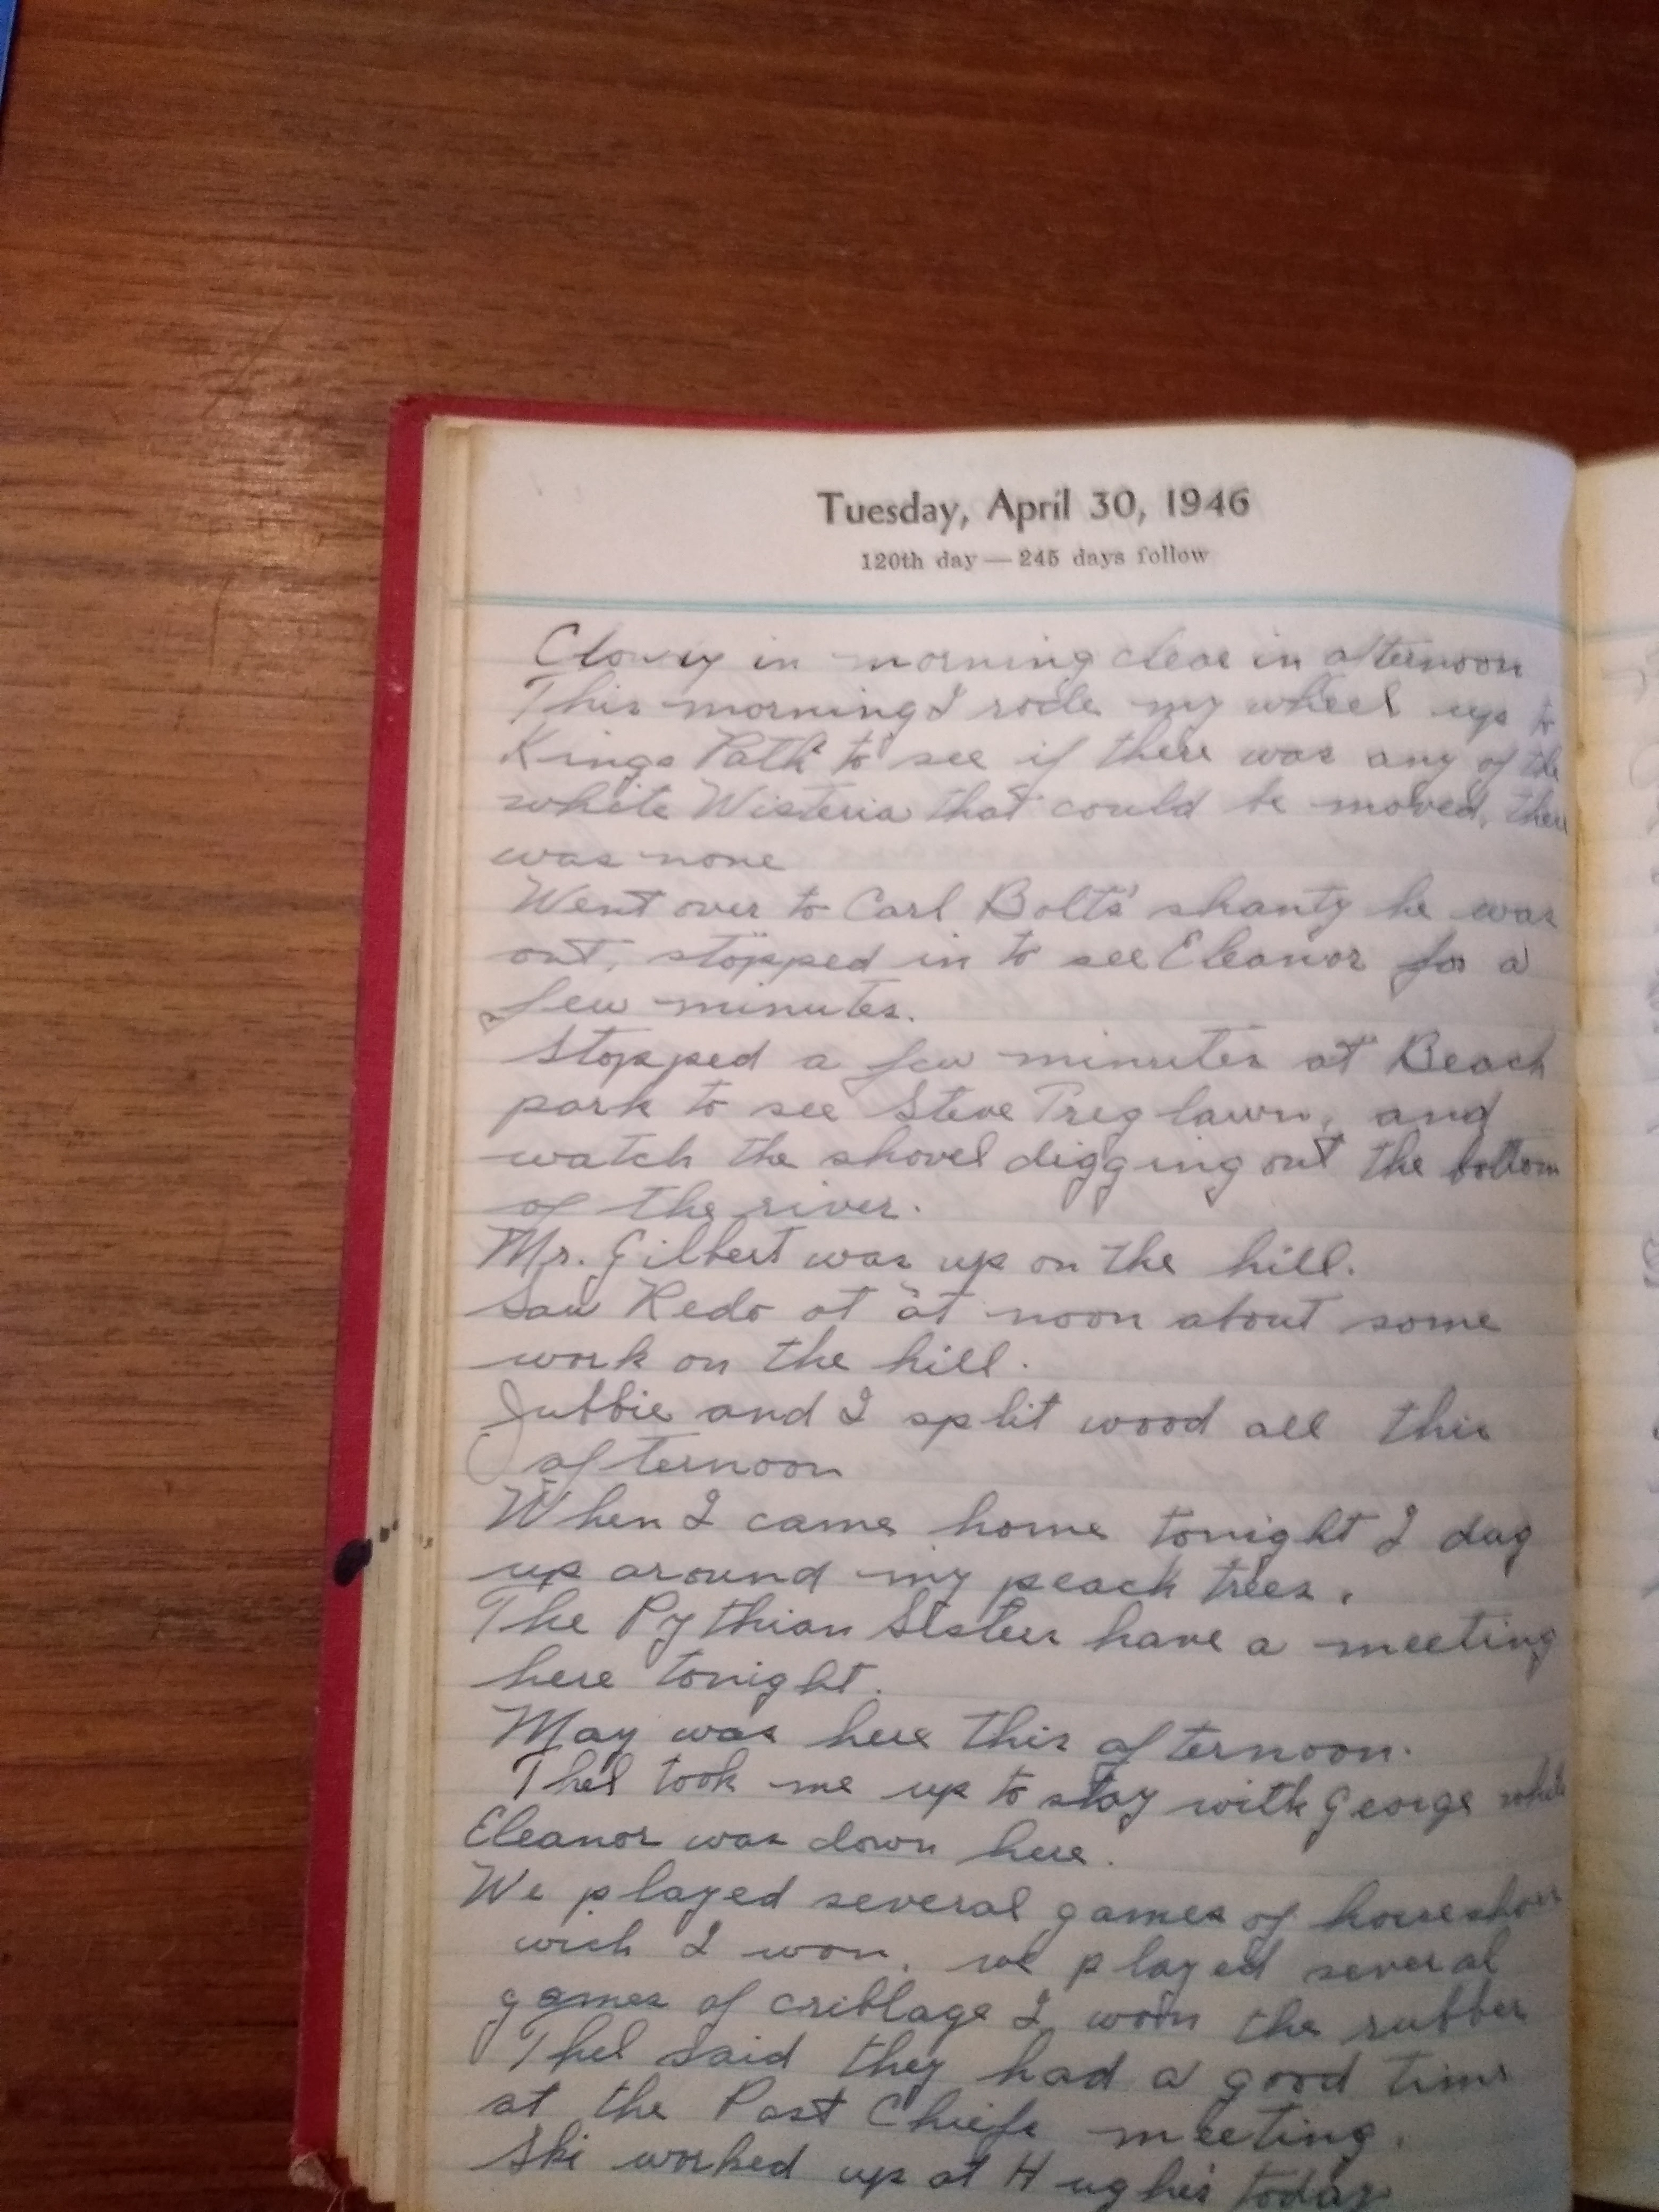 Tuesday, April 30, 1946
120th day — 245 days follow
Clowdy in morning clear in afternoon
This morning I rode my wheel up to
Kings Path to see if there was any of the
white Wisteria that could be moved, there
was none
Went over to Carl Bolts' shanty he was
out, stopped in to see Eleanor for a
few minutes.
Stopped a few minutes at Beach
park to see Steve Treglawn, and
watch the shovel digging out the bottom
of the river.
Mr. Gilbert was up on the hill.
Saw Redo at at noon about some
work on the hill.
Jubbie and I split wood all this
afternoon
When I came home tonight I dug
up around my peach trees.
The Pythian Sisters have a meeting
here tonight.
May was here this afternoon.
Thel took me up to stay with George while
Eleanor was down here.
We played several games of horseshoes
wich I won, we played several
games of cribbage I won the rubber
Thel said they had a good time
at the Past Chiefs meeting.
Ski worked up at Hughes today